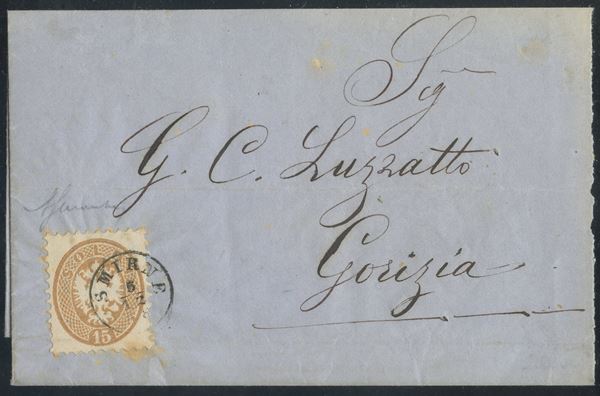 Sig
G. C. Luzzatto
Gorizia
SOLDI
SMIRNE
15